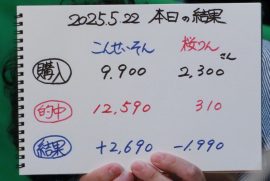 2025.5.22 本日の結果
こんせいそん 桜りんさん
購入 9.900 2,300
的中 12,590 310
結果 +2,690 -1.990